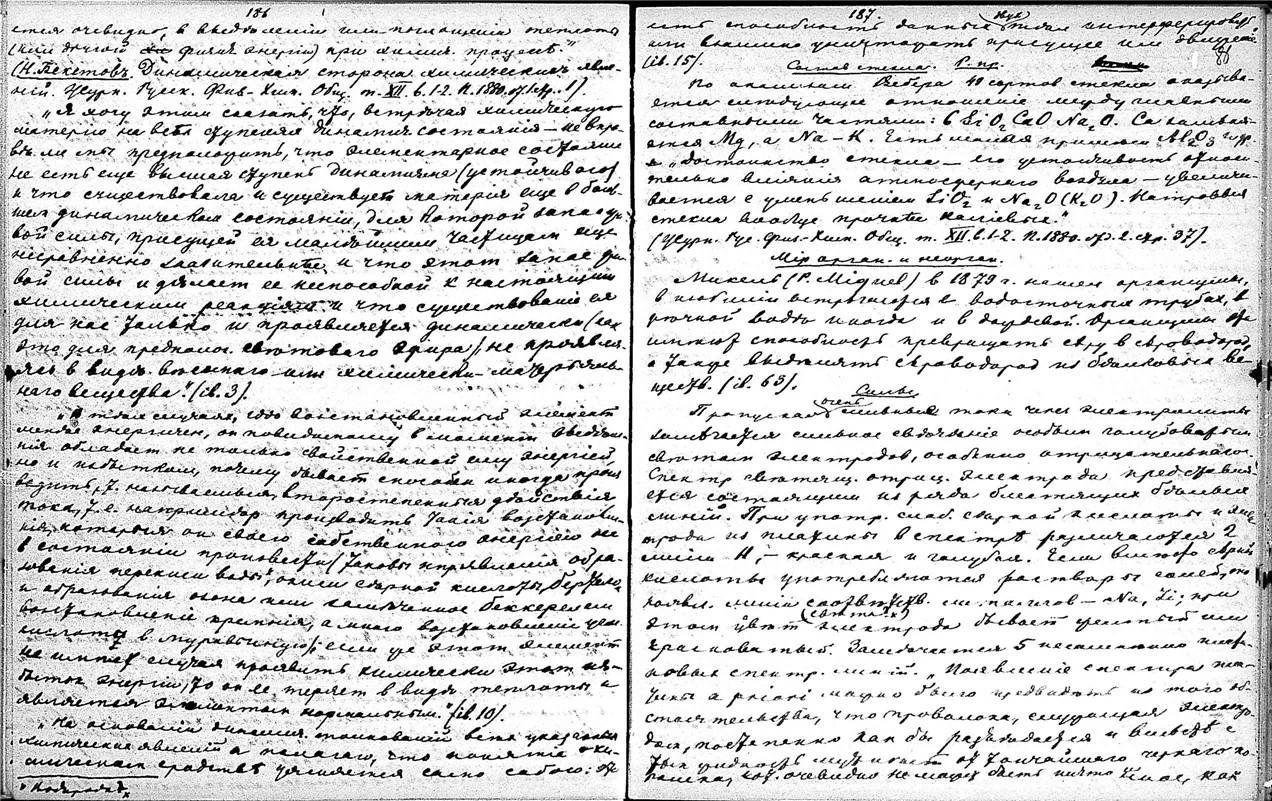 186
ется очевидно, в выделении или поглощении теплоты
(или другой физич. энергии) при химич. процессе."
(Н. Бекетовъ. Динамическая сторона химических явле-
ний. Журн. Русск. Физ-Хим. Общ. т. XII в. 1-2. П. 1880, стр. 1).
"Я могу этим сказать, что, встречая химическую
материю на всех ступенях динамич. состояния – не впра-
ве ли мы предположить, что элементарное состояние
не есть еще высшая ступень динамизма (устойчивого)
и что существовала и существует материя еще в боль-
шем динамическом состоянии, для которой запас жи-
вой силы, присущей ея малейшим частицам еще
несравненно значительнее и что этот запас жи-
вой силы и делает ее неспособной к настоящим
химическим реакциям и что существование ея
для нас только и проявляется динамически (как
это для предполож. светового эфира), не проявля-
ясь в виде весомого или химически-материаль-
наго вещества." (ib. 3).
"В том случае, когда восстановленный элемент
менее энергичен, он повидимому в момент выделе-
ния обладает не только свойственной ему энергией
но и избытком, почему бывает способен иногда произ-
водить, т. называемыя, второстепенныя действия
тока, т.е. например производить такия возстановле-
ния, которыя он своего собственного энергиею не
в состоянии произвести (таковы
явления обра-
зования перекиси воды, окиси серной кислоты, Бертело,
и образования озона или замеченное Беккерелем
возстановление кремния, а много возстановление угол.
кислоты в муравьиную); если же этот элемент
не имеет случая проявить химически этот из-
быток энергии, то он ее теряет в виде теплоты и
является элементом нормальным." (ib. 10).
"На основании динамич. толкований всех указанных
химических явлений я полагаю, что понятие о хи-
мическом сродстве уясняется само собою: это
187.
есть способность данных двух тел интерферировать
или взаимно уничтожать присущее им движение
(ib. 15).
86
Состав стекла. Р. пр.
По анализам Вебера 40 сортов стекла оказыва-
ется следующее отношение между главными
составными частями: 6 SiO2 CaO Na2O. Ca заменя-
ется Mg, а Na – K. Есть малая примесь Al2O3 и др.
"Достоинство стекла – его устойчивость относи-
тельно влияния атмосферного воздуха – увеличи-
вается с уменьшением SiO2 и Na2O (K2O). Натровыя
стекла вообще прочнее калиевых."
(Журн. Рус. Физ-Хим. Общ. т. XII в. 1-2. П. 1880. от. 2. стр. 37).
Мір орган. и неорган.
Микель (P. Miquel) в 1879 г. нашел организмы,
в изобилии встречающиеся в водосточных трубах, в
речной воде иногда и в дождевой. Организмы эти
имеют способность превращать серу в сероводород
а также выделять сероводород из белковых ве-
ществ. (ib. 63).
Силы
Пропуская очень сильные токи чрез электролиты
замечается сильное свечение особым голубоватым
светом электродов, особенно отрицательнаго.
Спектр светящ. отриц. электрода представля-
ется состоящим из ряда блестящих
линий. При употр. слаб. серной кислоты и элек-
трода из платины в спектре различаются 2
линии H, – красная и голубая. Если вместо серной
кислоты употребляются растворы солей, то
появл. линии соответств. металлов – Na, Li; при
этом цвет (света) электрода бывает желтый или
красноватый. Замечается 5 несомненно плати-
новых спектр. линий. "Появление спектра пла-
тины a priori можно было предвидеть из того об-
стоятельства, что проволока, служащая электро-
дом, постепенно как бы разъедается и вместе с
тем жидкость мутнеет от тончайшаго чернаго по-
рошка, кот. очевидно не может быть ничто иное, как